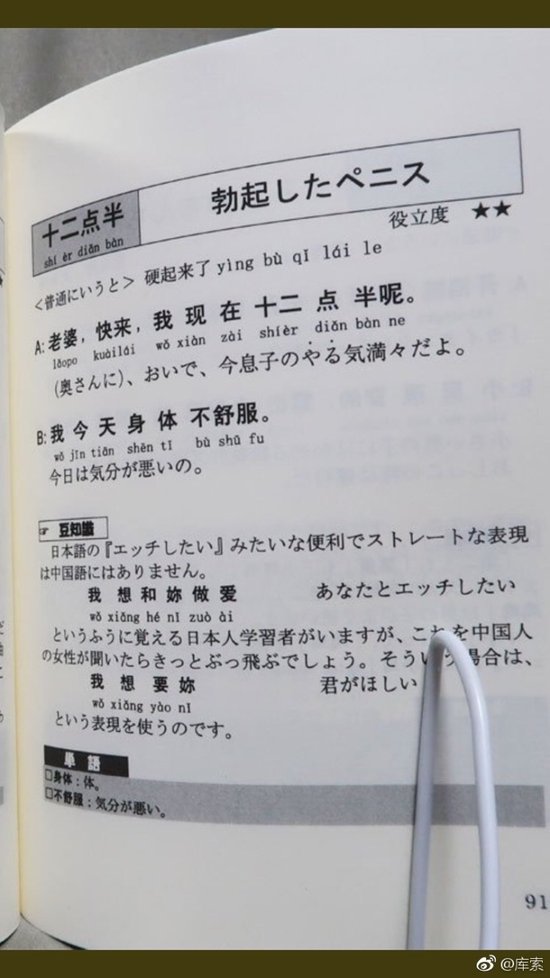 十二点半
shí èr diǎn bàn
勃起したペニス
役立度 ★★
＜普通にいうと＞ 硬起来了 yìng bù qǐ lái le
A: 老婆，快来，我 现 在 十二 点 半呢。
lǎopo kuàilái wǒ xiàn zài shíèr diǎn bàn ne
(奥さんに)、おいで、今息子のやる気満々だよ。
B: 我 今 天 身 体 不舒服。
wǒ jīn tiān shēn tǐ bù shū fu
今日は気分が悪いの。
☞ 豆知識
日本語の『エッチしたい』みたいな便利でストレートな表現
は中国語にはありません。
我 想 和 妳 做 爱 あなたとエッチしたい
wǒ xiǎng hé nǐ zuò ài
というふうに覚える日本人学習者がいますが、これを中国人
の女性が聞いたらきっとぶっ飛ぶでしょう。そういう場合は、
我 想 要 妳 君がほしい
wǒ xiǎng yào nǐ
という表現を使うのです。
単 語
□身体：体。
□不舒服：気分が悪い。
91
@库索